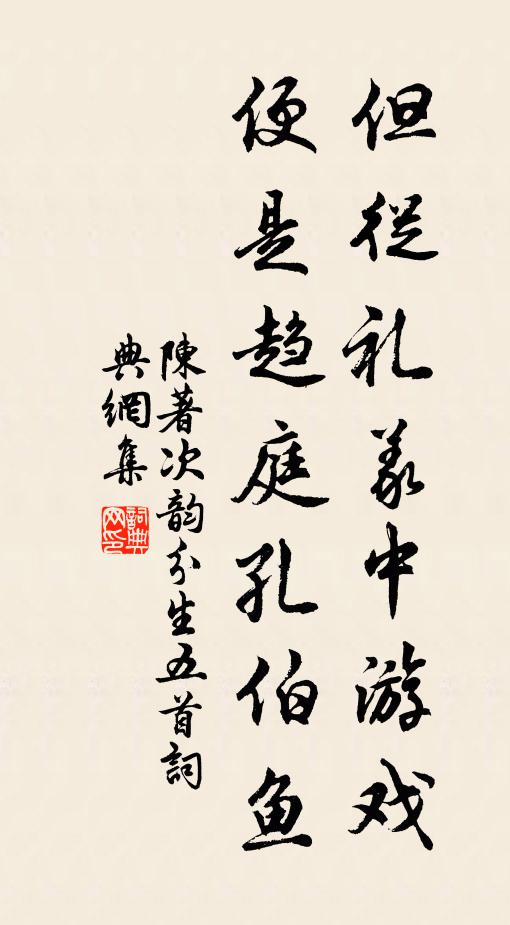 但從礼義中游戏
便是趋庭孔伯鱼
陳著次韵弥生五首詞
典網集
詞典
网印